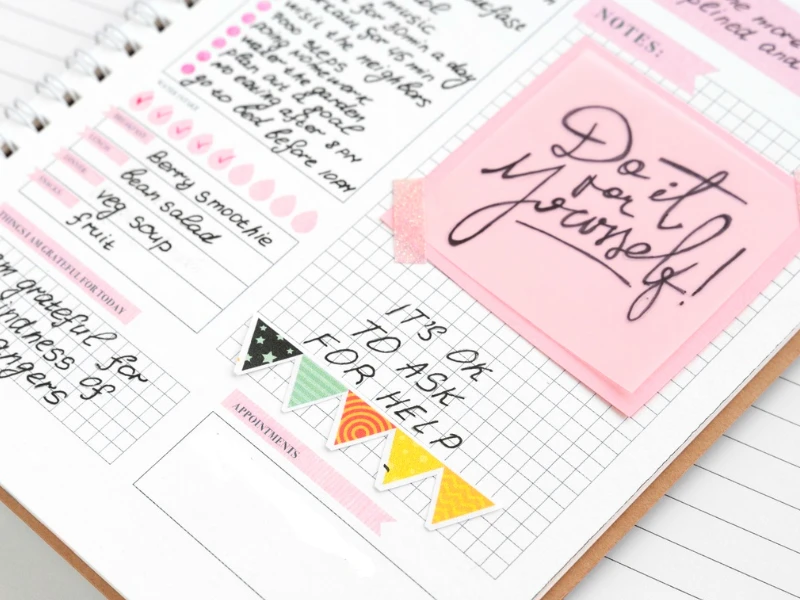 music
for 30min a day
for 45 min
visit the neighbors
steps
doing homework
water the garden
plan out a goal
no eating after 8 PM
go to bed before 10PM
BREAKFAST:
Berry smoothie
LUNCH:
bean salad
DINNER:
veg soup
SNACKS:
fruit
THINGS I AM GRATEFUL FOR TODAY
grateful for
kindness of
NOTES:
Do it
for
Yourself!
IT'S OK
TO ASK
FOR HELP
APPOINTMENTS